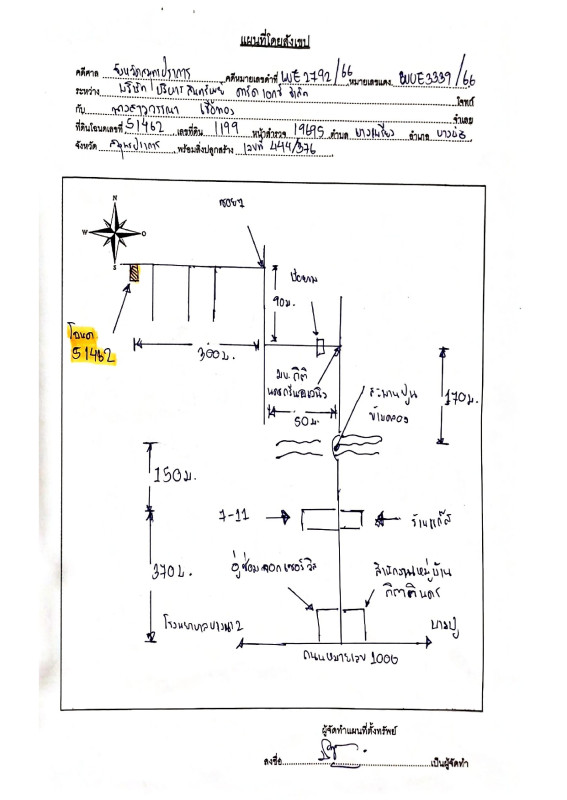 แผนที่โดยสังเขป
คดีศาล จังหวัดสมุทรปราการ คดีหมายเลขดำที่ ผบE2792/66 หมายเลขแดง ผบE3339/66
ระหว่าง บริษัท บริหารสินทรัพย์ คาร์ด เอกซ์ จำกัด โจทก์
กับ นางสาววรรณา จำเลย
ที่ดินโฉนดเลขที่ 51462 เลขที่ดิน 1199 หน้าสำรวจ 19695 ตำบล บางเพรียง อำเภอ บางบ่อ
จังหวัด สมุทรปราการ พร้อมสิ่งปลูกสร้าง เลขที่ 444/376
ซอย 2
N
W O
S
ป้อมยาม
90ม.
โฉนด
51462
300ม.
มบ.กิติ
นครกรีนอเวนิว
50ม.
สะพานปูน
ข้ามคลอง
170ม.
150ม.
7-11
ร้านแก๊ส
370ม.
อู่ซ่อมรถ
สำนักงานหมู่บ้าน
กิตตินคร
โรงพยาบาลบางนา2
บางปู
ถนนหมายเลข 1006
ผู้จัดทำแผนที่ตั้งทรัพย์
ลงชื่อ เป็นผู้จัดทำ